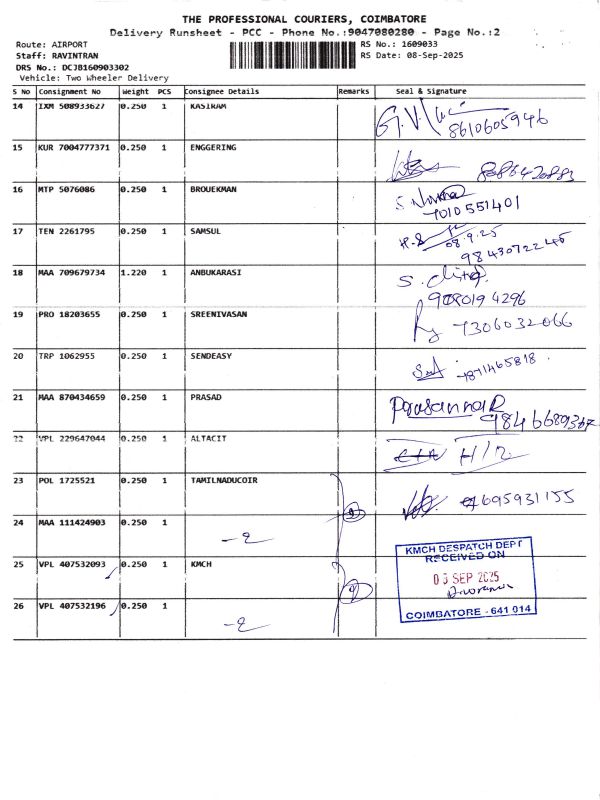 THE PROFESSIONAL COURIERS, COIMBATORE
Delivery Runsheet - PCC - Phone No.:9047080280 - Page No.:2
Route: AIRPORT
RS No.: 1609033
Staff: RAVINTRAN
RS Date: 08-Sep-2025
DRS No.: DCJB160903302
Vehicle: Two Wheeler Delivery
S No Consignment No Weight PCS Consignee Details Remarks Seal & Signature
14 IXM 508933627 0.250 1 KASIRAM
8610605946
15 KUR 7004777371 0.250 1 ENGGERING
16 MTP 5076086 0.250 1 BROUEKMAN
7010551401
17 TEN 2261795 0.250 1 SAMSUL
08.9.25
9843072245
18 MAA 709679734 1.220 1 ANBUKARASI
19 PRO 18203655 0.250 1 SREENIVASAN
7306032066
20 TRP 1062955 0.250 1 SENDEASY
7871465818
21 MAA 870434659 0.250 1 PRASAD
Prasanna R
22 VPL 229647044 0.250 1 ALTACIT
23 POL 1725521 0.250 1 TAMILNADUCOIR
24 MAA 111424903 0.250 1
-2
25 VPL 407532093 0.250 1 KMCH
KMCH DESPATCH DEPT
RECEIVED ON
SEP 2025
COIMBATORE - 641 014
26 VPL 407532196 0.250 1
-2